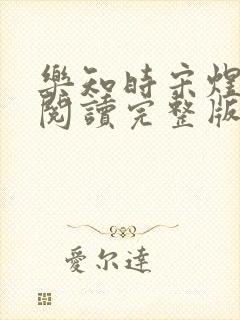 樂知時宋煜
閱讀完整版
愛尔達